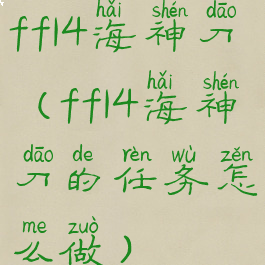 hǎi shén dāo
ff14海神刀
hǎi shén
(ff14海神
dāo de rèn wù zěn
刀的任务怎
me zuò
么做)